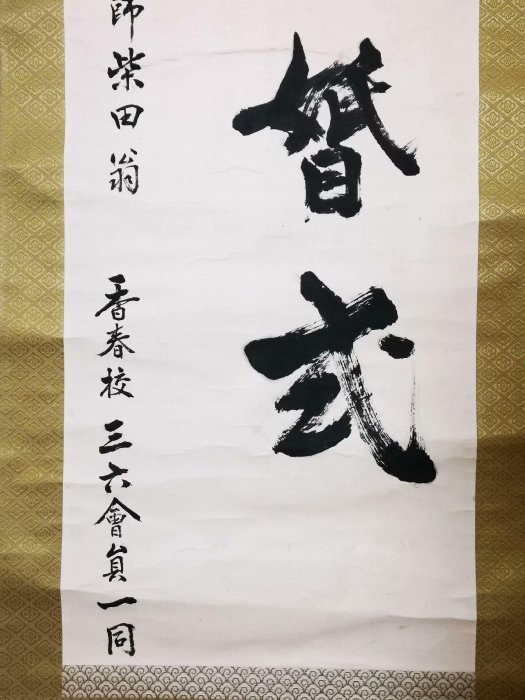 婚式
師柴田翁 香春校 三六會員一同